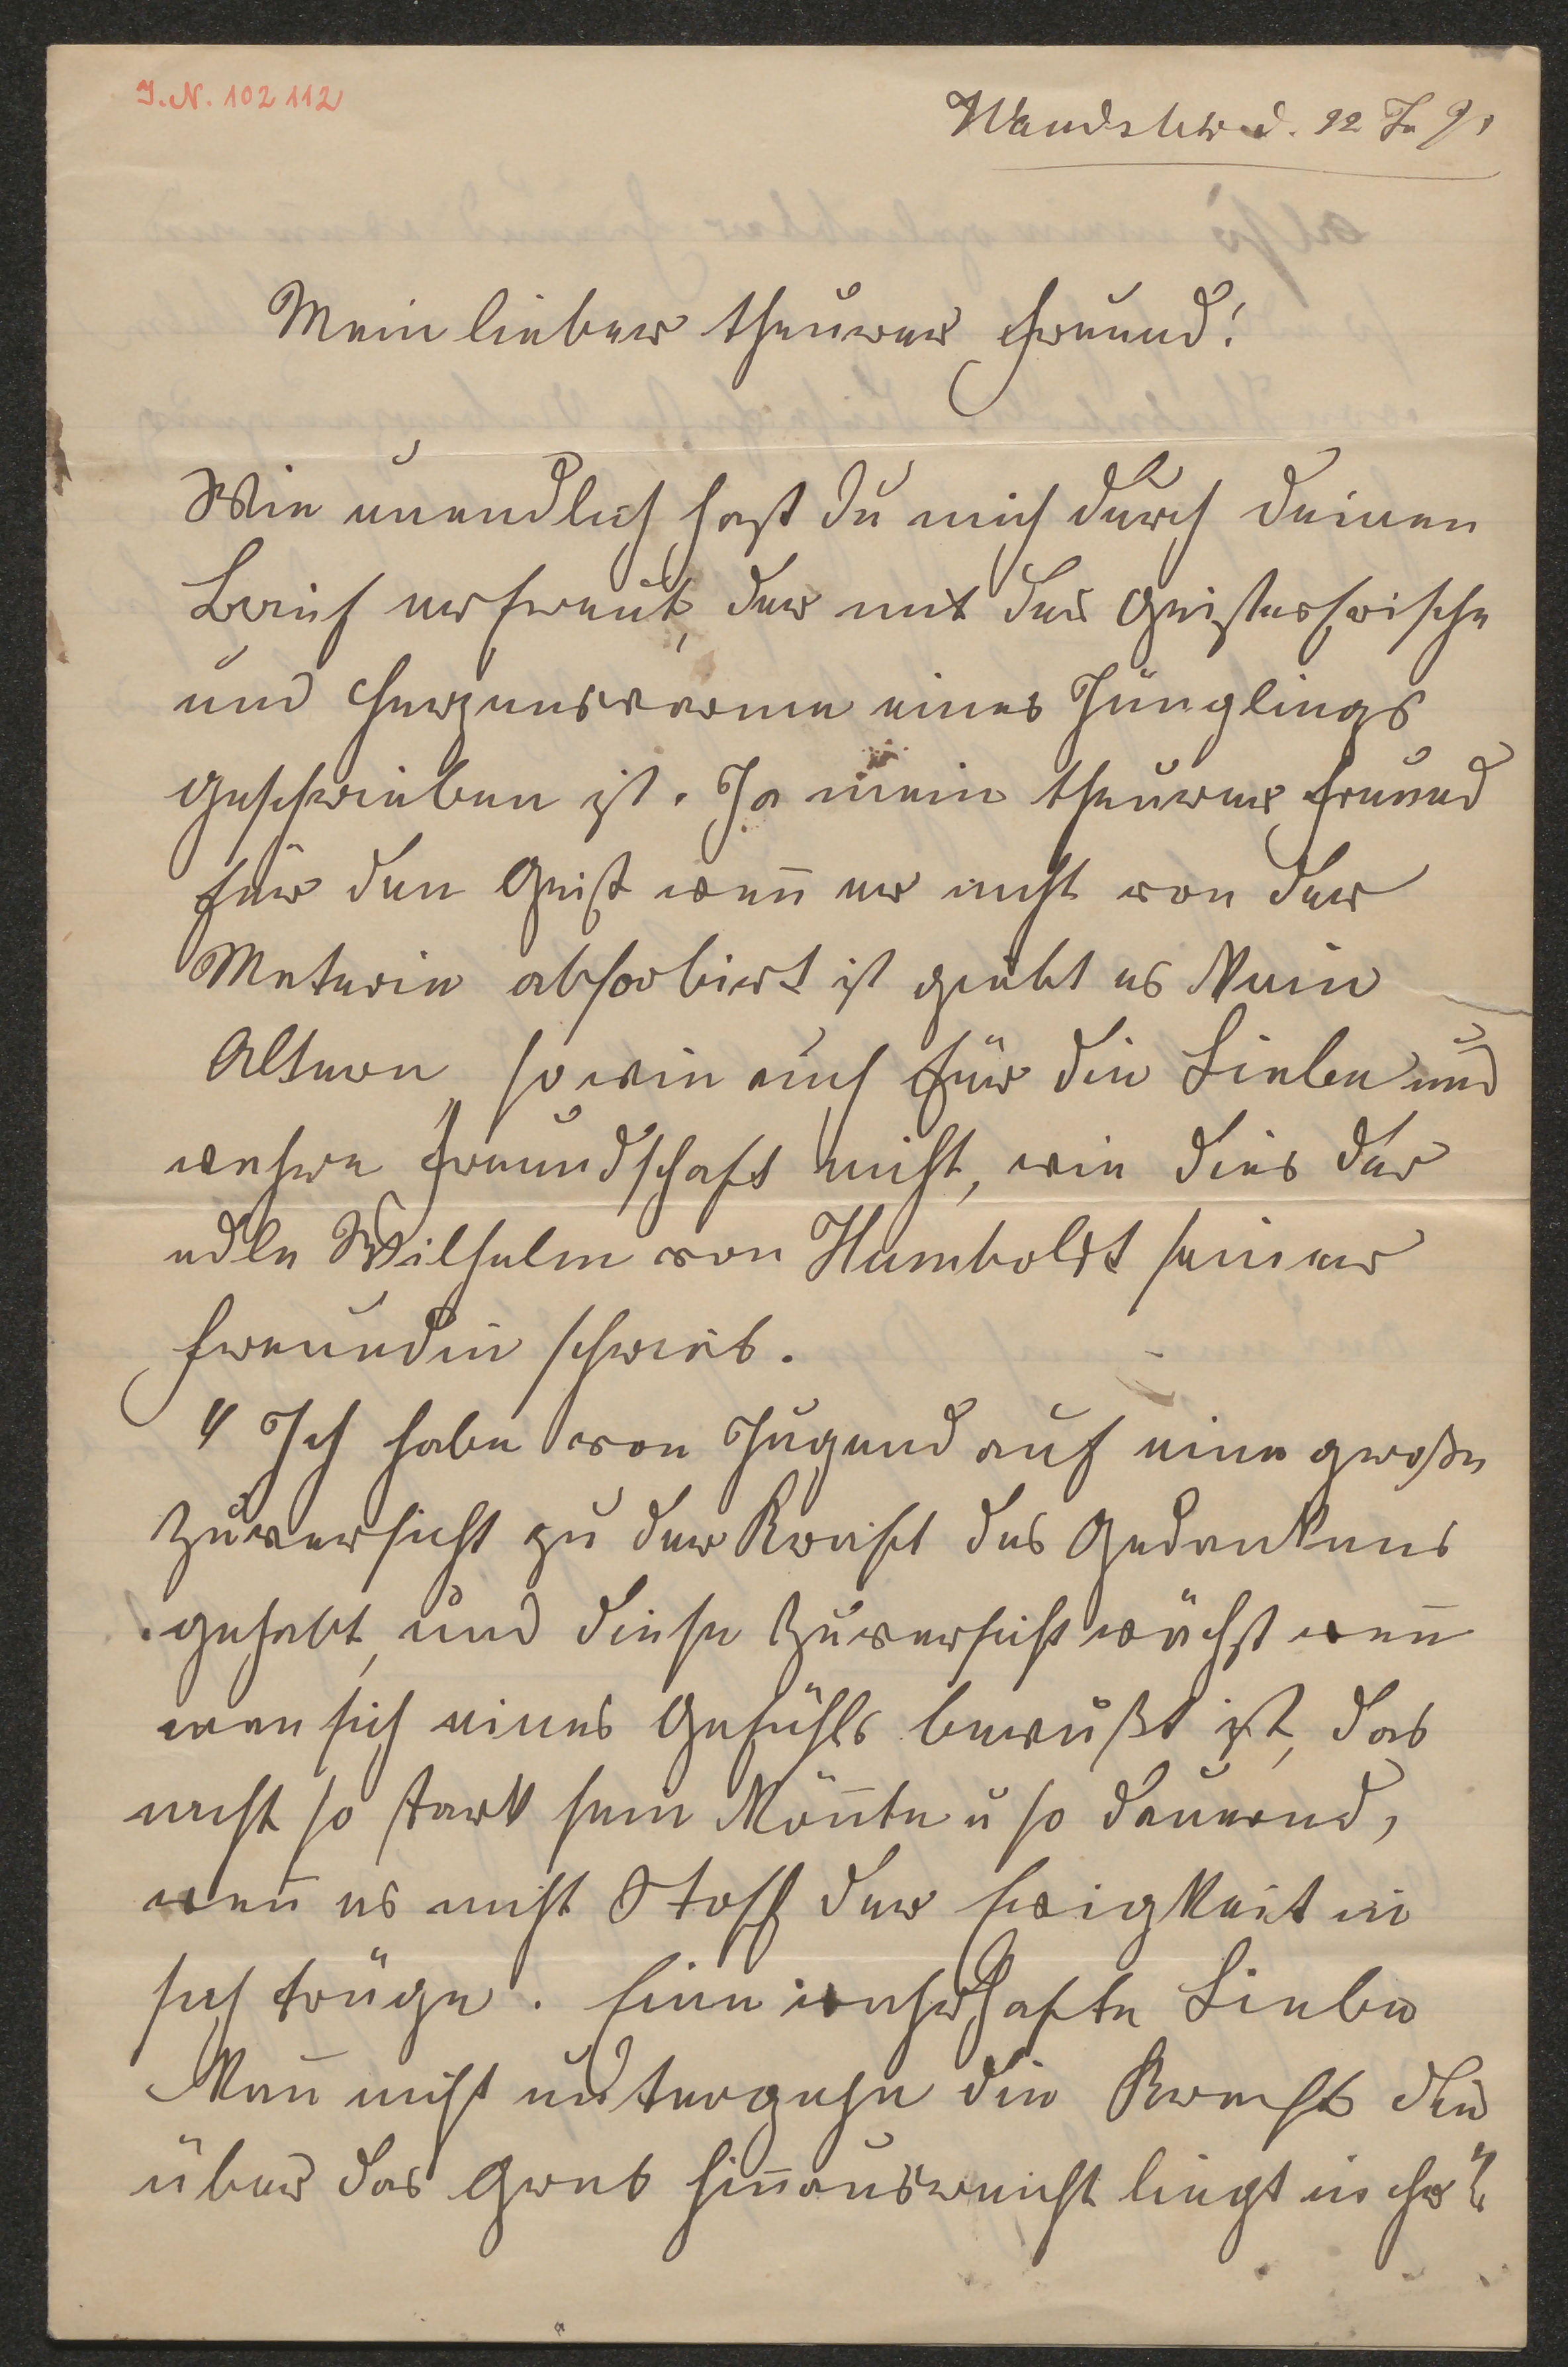 I.N. 102112
Wandsbek d. 22 Ja 91
Mein lieber theurer Freund!
Wie unendlich hast Du mich durch Deinen
Brief erfreut, der mit der Geistesfrische
und Herzenswärme eines Jünglings
geschrieben ist. Ja mein theurer Freund
für den Geist weñ er nicht von der
Materie absorbirt ist giebt es kein
Altern, sowie auch für die Liebe und
wahre Freundschaft nicht, wie dies der
edle Wilhelm von Humboldt seiner
Freundin schrieb.
"Ich habe von Jugend auf eine große
Zuversicht zu der Kraft des Gedankens
gehabt, und diese Zuversicht wächst weñ
man sich eines Gefühls bewußt ist, das
nicht so stark sein köñte u so dauernd,
weñ es nicht Stoff der Ewigkeit in
sich trüge. Eine wahrhafte Liebe
kañ nicht untergehn die Kraft die
über das Grab hinausreicht liegt in ihr"